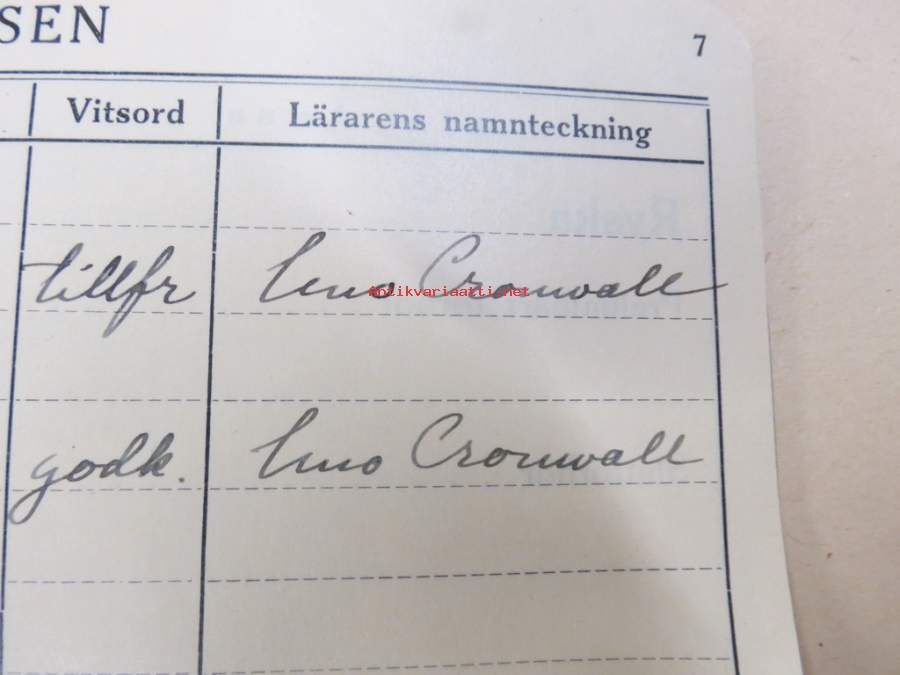 SEN
7
Vitsord Lärarens namnteckning
tillfr Uno Cronwall
antikvariaatti.net
godk. Uno Cronwall